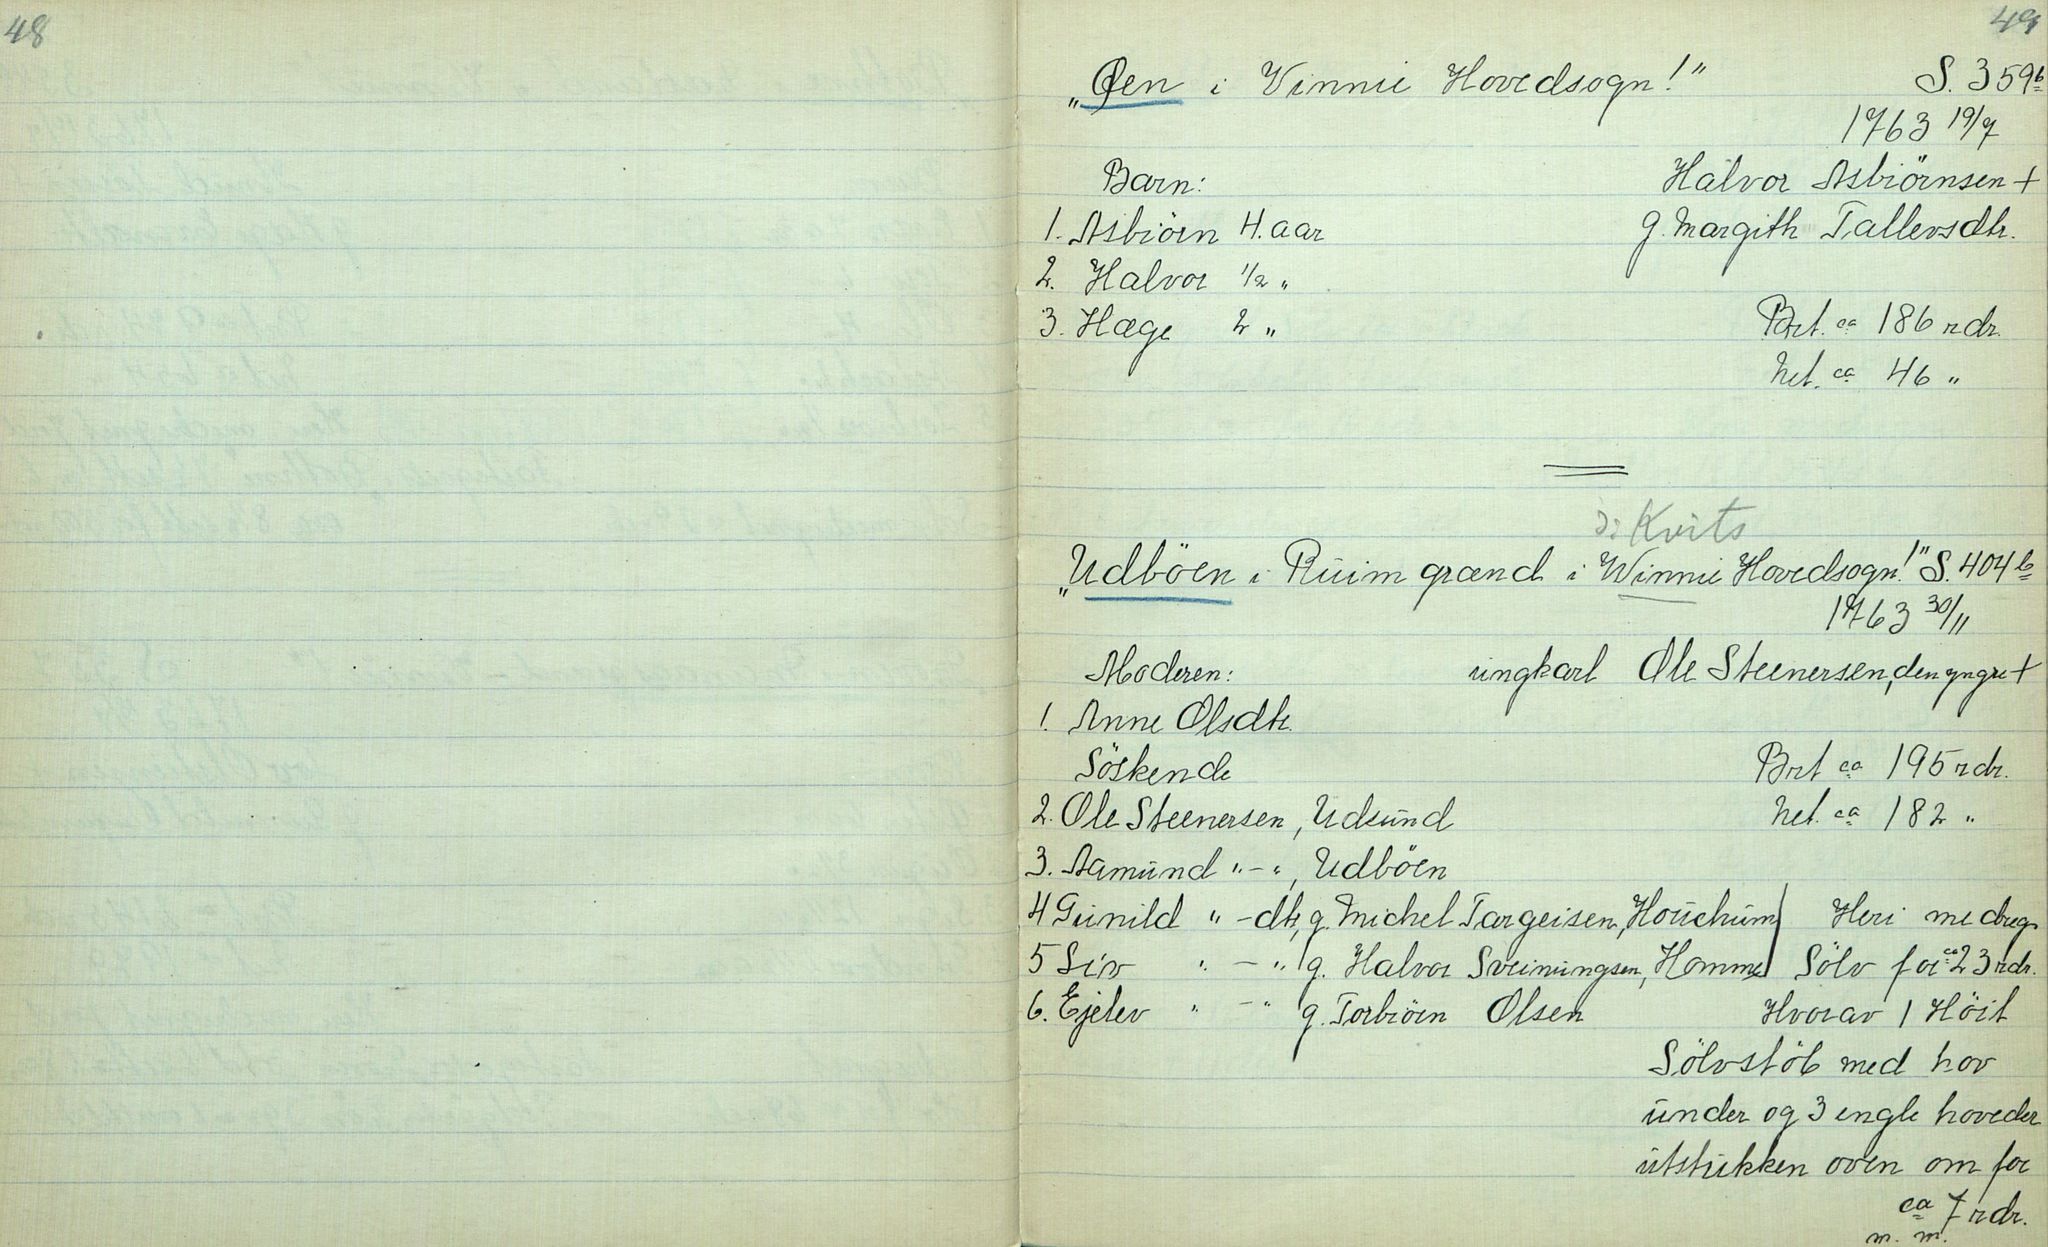 48
49
„Øen i Vinnie Hovedsogn!" S. 359b
1763 19/7
Barn: Halvor Asbiörnsen +
1. Asbiörn 4. aar g. Margith Tallevsdtr.
2. Halvor 1/2 "
3. Hæge 2 " Brt. ca 186 rdr.
Net. ca 46 "
ɔ: Kvits
„Udböen i Rüim grænd i Winnie Hovedsogn!" S. 404b
1763 30/11
Moderen: üngkarl Ole Steenersen, den yngre +
1. Anne Olsdtr.
Söskende Brt ca 195 rdr.
2. Ole Steenersen, Udsünd Net. ca 182 "
3. Aamünd "-", Udböen
4 Günild " -dtr, g. Michel Targeisen, Houchüm Heri medreg.
5 Siv " - " g. Halvor Sveinüngsen, Homme Sölv for ca 23 rdr.
6. Ejelev " - " g. Torbiörn Olsen Hvorav 1 Höit
Sölvstöb med hov
ünder og 3 engle hoveder
ütstükken oven om for
ca 7 rdr.
m. m.